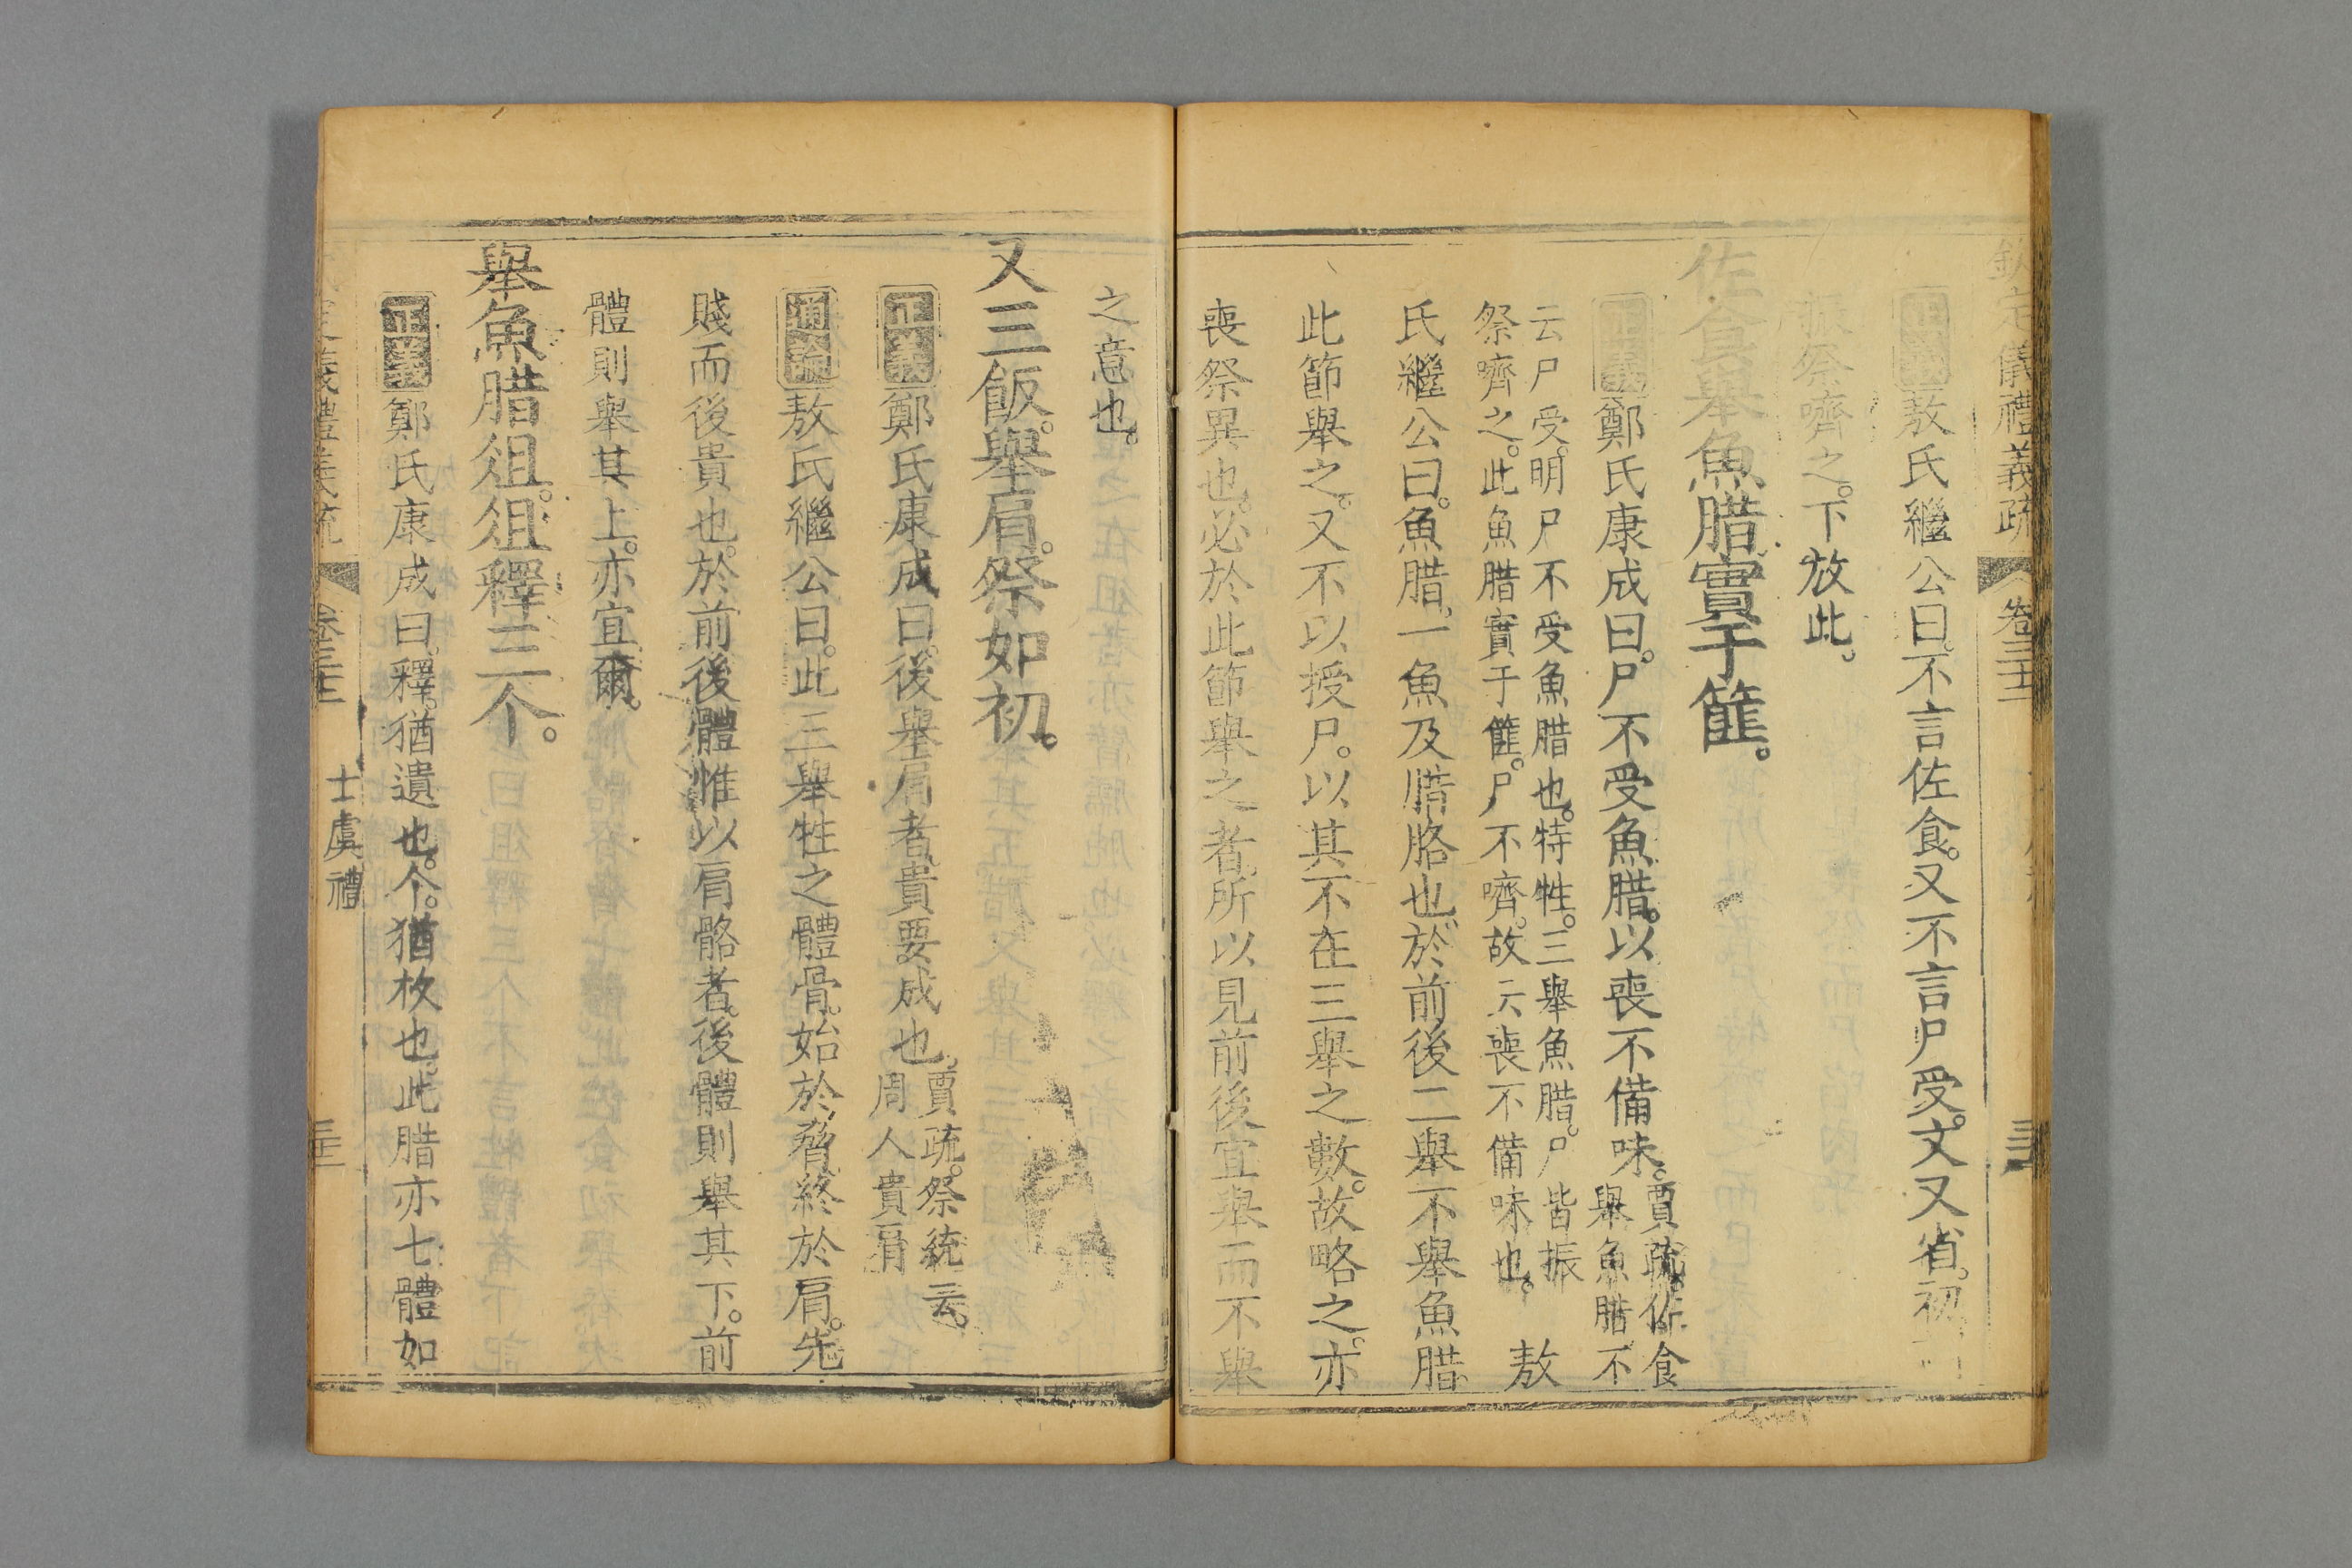 欽定儀禮義疏 卷三十三
正義敖氏繼公曰。不言佐食。又不言尸受。文又省。初
振祭嚌之。下放此。
佐食舉魚腊。實于篚。
正義鄭氏康成曰。尸不受魚腊。以喪不備味。賈疏。佐食舉魚腊。不
云尸受。明尸不受魚腊也。特牲。三舉魚腊。尸皆振
祭嚌之。此魚腊實于篚。尸不嚌。故云喪不備味也。 敖
氏繼公曰。魚腊。一魚及腊胳也。於前後二舉不舉魚腊
此節舉之。又不以授尸。以其不在三舉之數。故略之。亦
喪祭異也。必於此節舉之者。所以見前後宜舉而不舉
之意也。
又三飯。舉肩。祭如初。
正義鄭氏康成曰。後舉肩者。貴要成也。賈疏。祭統云。
周人貴肩
通論敖氏繼公曰。此三舉牲之體骨。始於脅。終於肩。先
賤而後貴也。於前後體惟以肩骼者。後體則舉其下。前
體則舉其上。亦宜爾。
舉魚腊俎。俎釋三个。
正義鄭氏康成曰。釋。猶遺也。个。猶枚也。此腊亦七體如
士虞禮